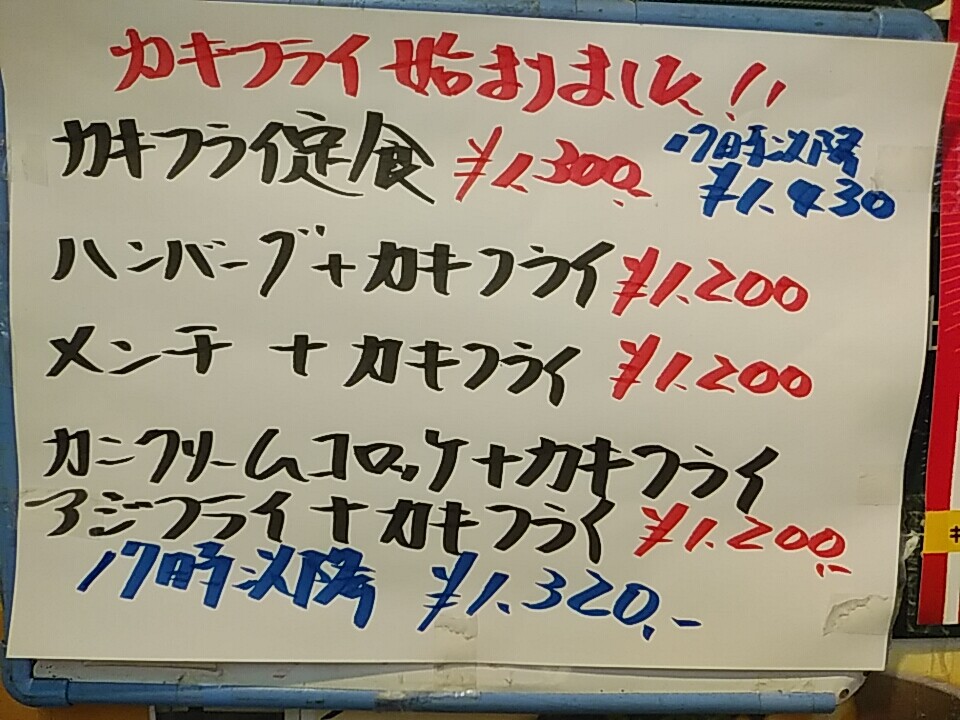 カキフライ始まりました!!
カキフライ定食 ¥1,300.-
17時以降
¥1,430
ハンバーグ+カキフライ ¥1,200
メンチ + カキフライ ¥1,200
カニクリームコロッケ+カキフライ
アジフライ+カキフライ ¥1,200.-
17時以降 ¥1,320.-